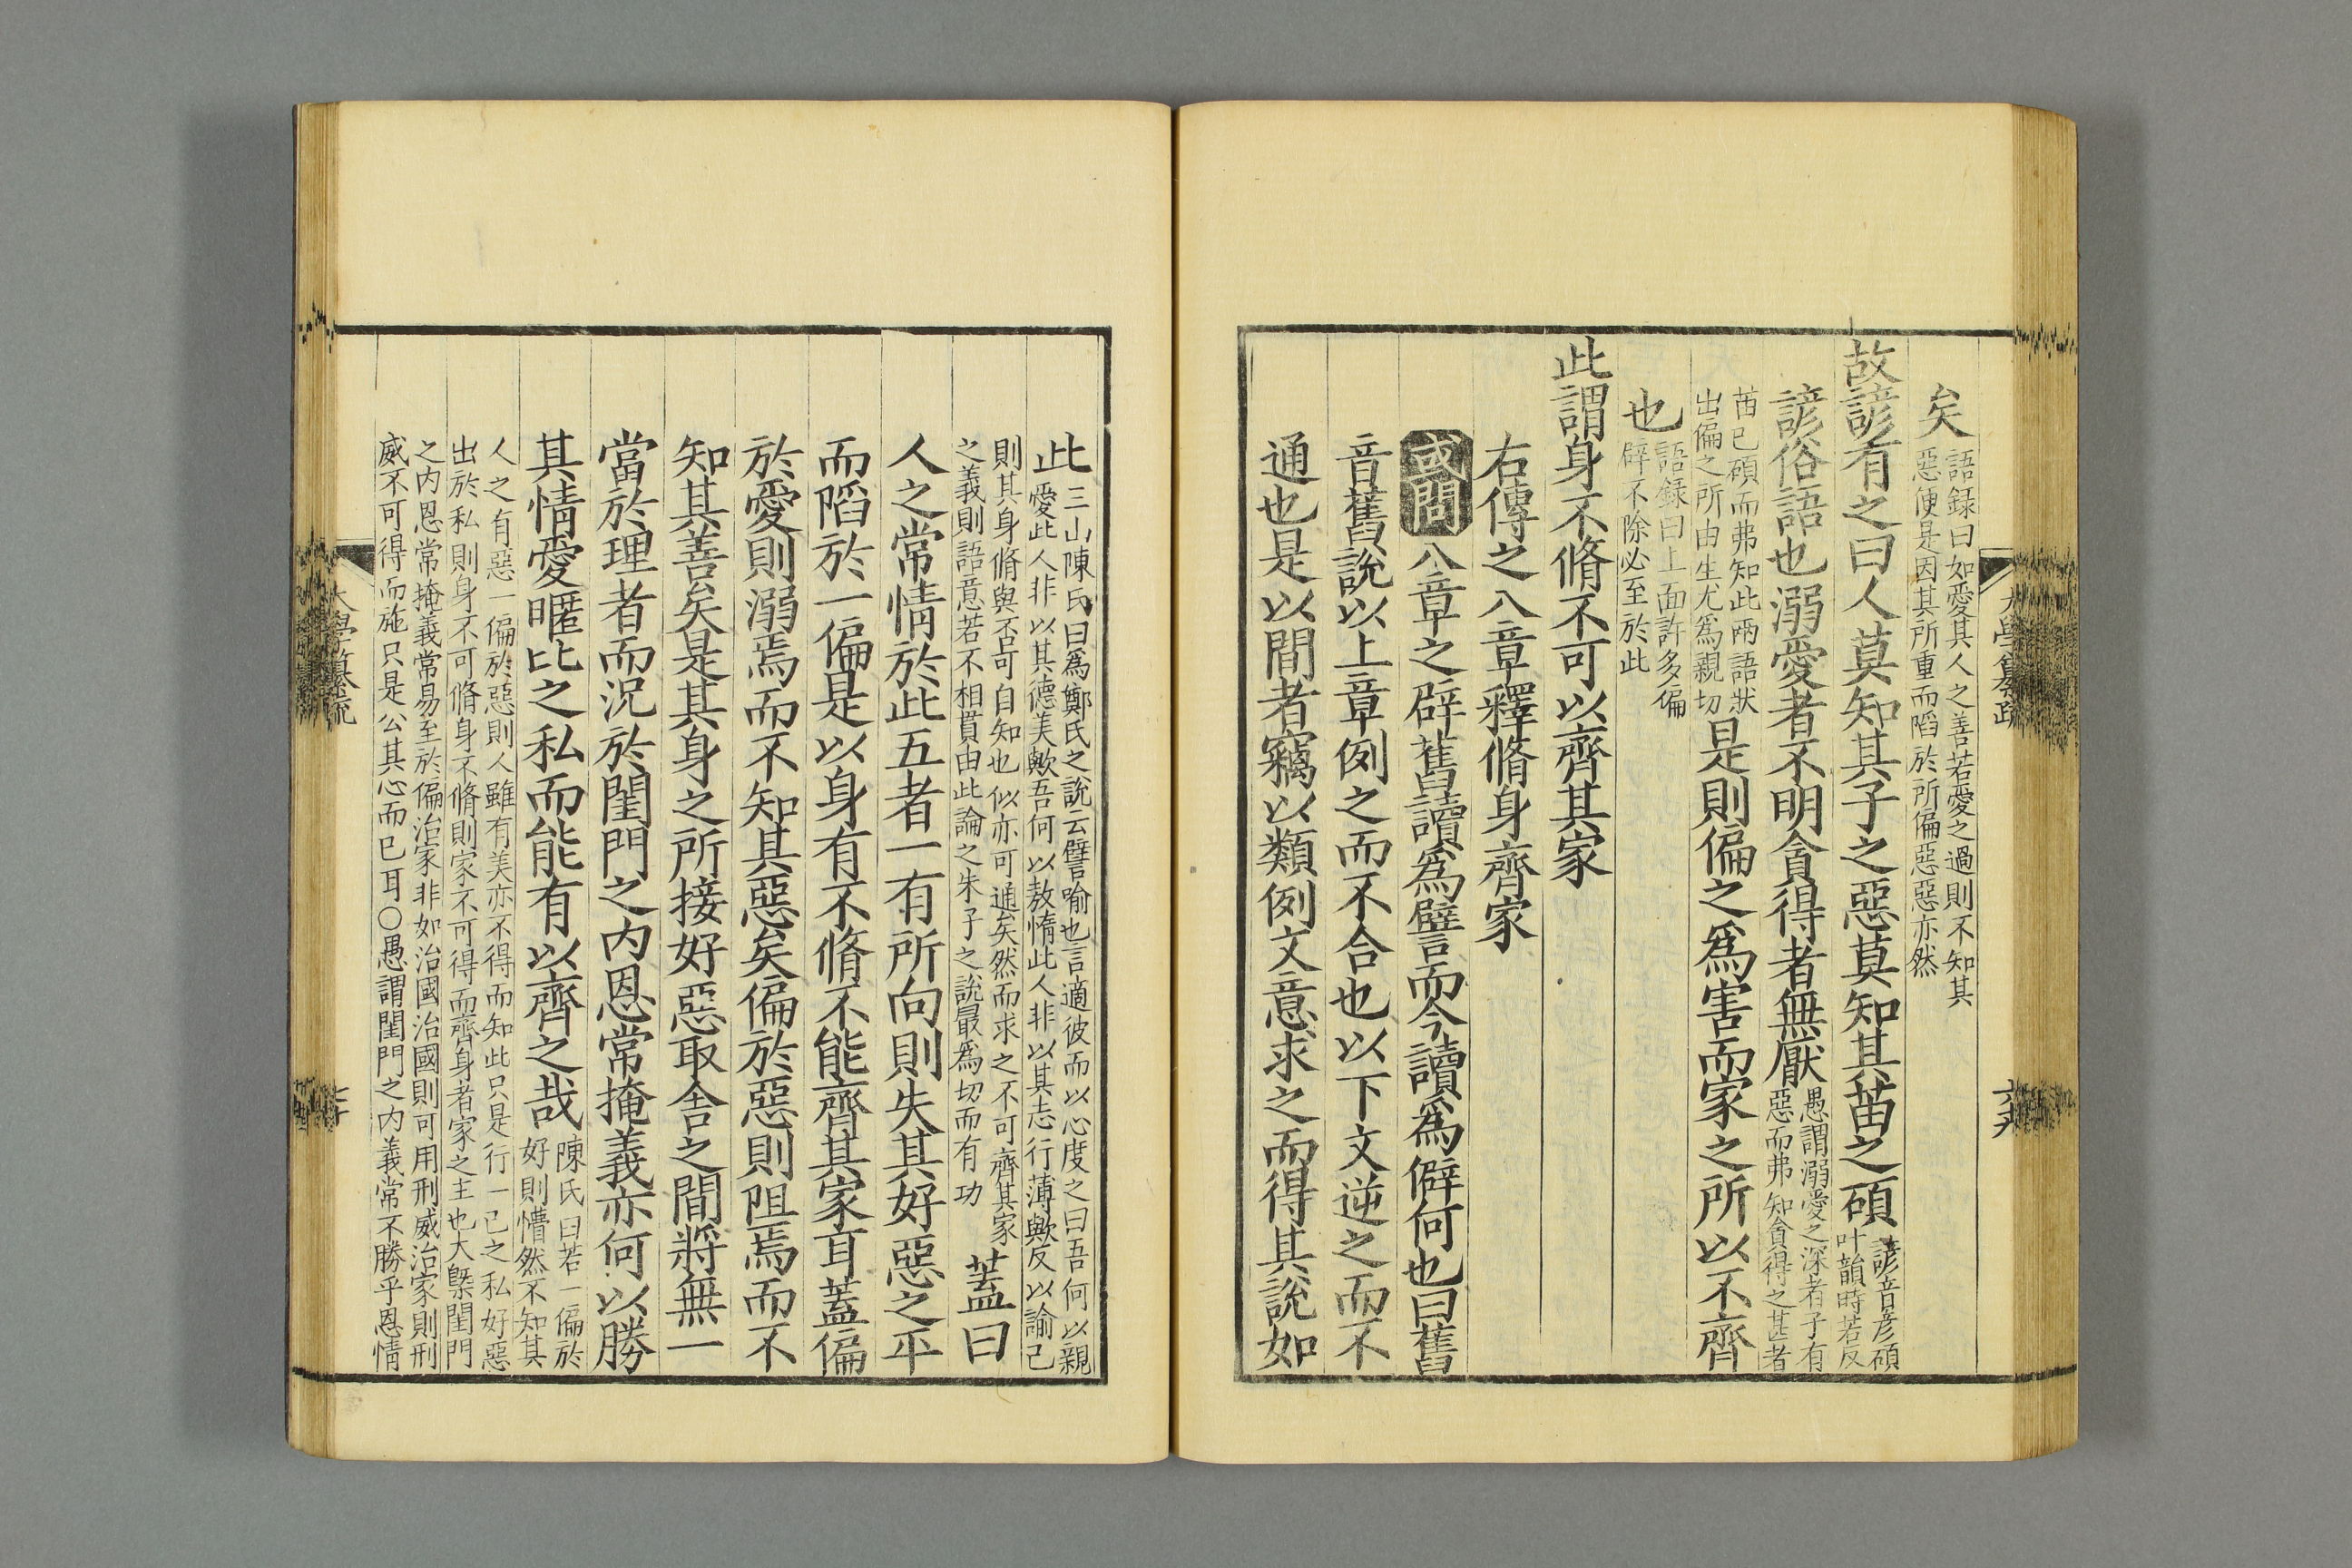 矣語録曰如愛其人之善若愛之過則不知其
惡便是因其所重而陷於所偏惡惡亦然
故諺有之曰人莫知其子之惡莫知其苗之碩諺音彦碩
叶韻時若反
諺俗語也溺愛者不明貪得者無厭愚謂溺愛之深者子有
惡而弗知貪得之甚者
苗已碩而弗知此兩語狀
出偏之所由生尤爲親切是則偏之爲害而家之所以不齊
也語録曰上面許多偏
辟不除必至於此
此謂身不脩不可以齊其家
右傳之八章釋脩身齊家
或問八章之辟舊讀爲譬而今讀爲僻何也曰舊
音舊說以上章例之而不合也以下文逆之而不
通也是以間者竊以類例文意求之而得其說如
大學纂疏
六十九
此三山陳氏曰爲鄭氏之說云譬喻也言適彼而以心度之曰吾何以親
愛此人非以其德美歟吾何以敖惰此人非以其志行薄歟反以諭己
則其身脩與否可自知也似亦可通矣然而求之不可齊其家
之義則語意若不相貫由此論之朱子之說最爲切而有功蓋曰
人之常情於此五者一有所向則失其好惡之平
而陷於一偏是以身有不脩不能齊其家耳蓋偏
於愛則溺焉而不知其惡矣偏於惡則阻焉而不
知其善矣是其身之所接好惡取舍之間將無一
當於理者而況於閨門之内恩常掩義亦何以勝
其情愛暱比之私而能有以齊之哉陳氏曰若一偏於
好則懵然不知其
人之有惡一偏於惡則人雖有美亦不得而知此只是行一己之私好惡
出於私則身不可脩身不脩則家不可得而齊身者家之主也大槩閨門
之内恩常掩義常易至於偏治家非如治國治國則可用刑威治家則刑
威不可得而施只是公其心而已耳○愚謂閨門之内義常不勝乎恩情
大學纂疏
七十